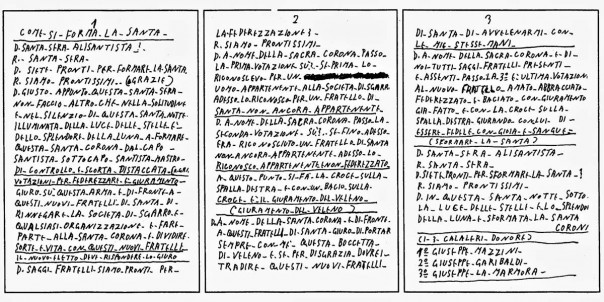 1
COME-SI-FORMA-LA-SANTA-
D. SANTA-SERA-ALISANTISTA!.
R.- SANTA-SERA-
D. SIETE-PRONTI-PER-FORMARE-LA-SANTA
R. SIAMO-PRONTISSIMI-(GRAZIE)
D. GIUSTO-APPUNTO-QUESTA-SANTA-SERA-
NON-FACCIO-ALTRO-CHE-NELLA-SOLITUDINE
E-NEL-SILENZIO-DI-QUESTA-SANTA-NOTTE-
ILLUMINATA-DELLA-LUCE-DELLE-STELLE-E-
DELLO-SPLENDORE-DELLA-LUNA-A-FORMARE-
QUESTA-SANTA-CORONA-DAL-CAPO-
SANTISTA-SOTTO CAPO-SANTISTA-MASTRO-
DI-CONTROLLO-E-SCORTA-DISTACCATA-
VOTAZIONI-PER-FEDERIZZARE-E-GIURAMENTO-
GIURO-SU-QUESTA-ARMA-E-DI-FRONTE-A-
QUESTI-NUOVI-FRATELLI-DI-SANTA-DI
RINNEGARE-LA-SOCIETA-DI-SGARRO-E-
QUALSIASI-ORGANIZZAZIONE-E-FARE-
PARTE-ALLA-SANTA-CORONA-E-DIVIDERE-
SORTE-E-VITA-CON-QUESTI-NUOVI-FRATELLI-
IL-NUOVO-ELETTO-DEVE-RISPONDERE-LO-GIURO
D. SAGGI-FRATELLI-SIAMO-PRONTI-PER-
2
LA-FEDERIZZAZIONE?-
R. SIAMO-PRONTISSIMI-
D. A-NOME-DELLA-SACRA-CORONA-PASSO-
LA-PRIMA-VOTAZIONE-SU!-S-PRIMA-LO-
RICONOSCEVO-PER-UN-
UOMO-APPARTENENTE-ALLA-SOCIETA-DI-SGARRO
ADESSO-LO-RICONOSCO-PER-UN-FRATELLO-DI-
SANTA-NON-ANCORA-APPARTENENTE-
D. A-NOME-DELLA-SACRA-CORONA-PASSO-LA-
SECONDA-VOTAZIONE-SU!-SE-FINO-ADESSO-
ERA-RICONOSCIUTO-UN-FRATELLO-DI-SANTA
NON-ANCORA-APPARTENENTE-ADESSO-LO-
RICONOSCO-APPARTENENTE-NON-FEDERIZZATO-
A-QUESTO-PUNTO-SI-FA-LA-CROCE-SULLA-
SPALLA-DESTRA-E-CON-UN-BACIO-SULLA-
CROCE-E'-IL-GIURAMENTO-DEL-VELENO-
(GIURAMENTO-DEL-VELENO)
D. A-NOME-DELLA-SANTA-CORONA-E-DI-FRONTE-
A-QUESTI-FRATELLI-DI-SANTA-GIURO-DI-PORTAR
SEMPRE-CON-ME-QUESTA-BOCCETTA-
DI-VELENO-E-SE-PER-DISGRAZIA-DOVREI-
TRADIRE-QUESTI-NUOVI-FRATELLI-
3
DI-SANTA-DI-AVVELENARMI-CON-
LE-MIE-STESSE-MANI-
D. A-NOME-DELLA-SACRA-CORONA-E-DI-
NOI-TUTTI-SAGGI-FRATELLI-PRESENTI-
E-ASSENTI-PASSO-LA-3ª-E-ULTIMA-VOTAZION
AL-NUOVO-FRATELLO-AMATO-ABBRACCIATO-
FEDERIZZATO-E-BACIATO-CON-GIURAMENTO
GIA-FATTO-E-CON-LA-CROCE-SULLA-
SPALLA-DESTRA-GIURANDO-CON-LUI-DI-
ESSERE-FEDELE-CON-GIOIA-E-SANGUE-
(SFORMARE-LA-SANTA)
D- SANTA-SERA-ALISANTISTA-
R. SANTA-SERA-
D. SIETE-PRONTI-PER-SFORMARE-LA-SANTA-?
R. SIAMO-PRONTISSIMI-
D. IN-QUESTA-SANTA-NOTTE-SOTTO-
LA-LUCE-DELLE-STELLE-E-LO-SPLENDORE
DELLA-LUNA-E-SFORMATA-LA-SANTA
CORONA
(I-3-CAVALIERI-D'ONORE)
1º-GIUSEPPE-MAZZINI-
2º-GIUSEPPE-GARIBALDI-
3º-GIUSEPPE-LA-MARMORA-